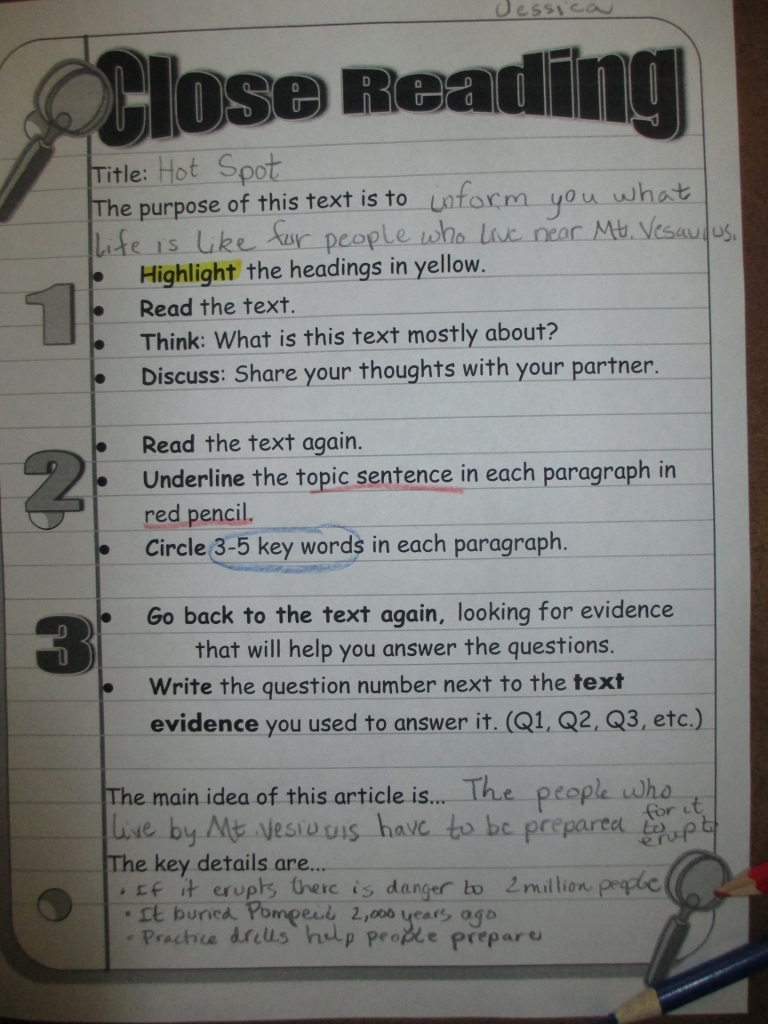 Jessica
Close Reading
Title: Hot Spot
The purpose of this text is to inform you what
life is like for people who live near Mt. Vesauius.
1
• Highlight the headings in yellow.
• Read the text.
• Think: What is this text mostly about?
• Discuss: Share your thoughts with your partner.
2
• Read the text again.
• Underline the topic sentence in each paragraph in
red pencil.
• Circle 3-5 key words in each paragraph.
3
• Go back to the text again, looking for evidence
that will help you answer the questions.
• Write the question number next to the text
evidence you used to answer it. (Q1, Q2, Q3, etc.)
The main idea of this article is... The people who
live by Mt. Vesiuuis have to be prepared for it to erupt
The key details are...
• If it erupts there is danger to 2 million people
• It buried Pompeii 2,000 years ago
• Practice drills help people prepare